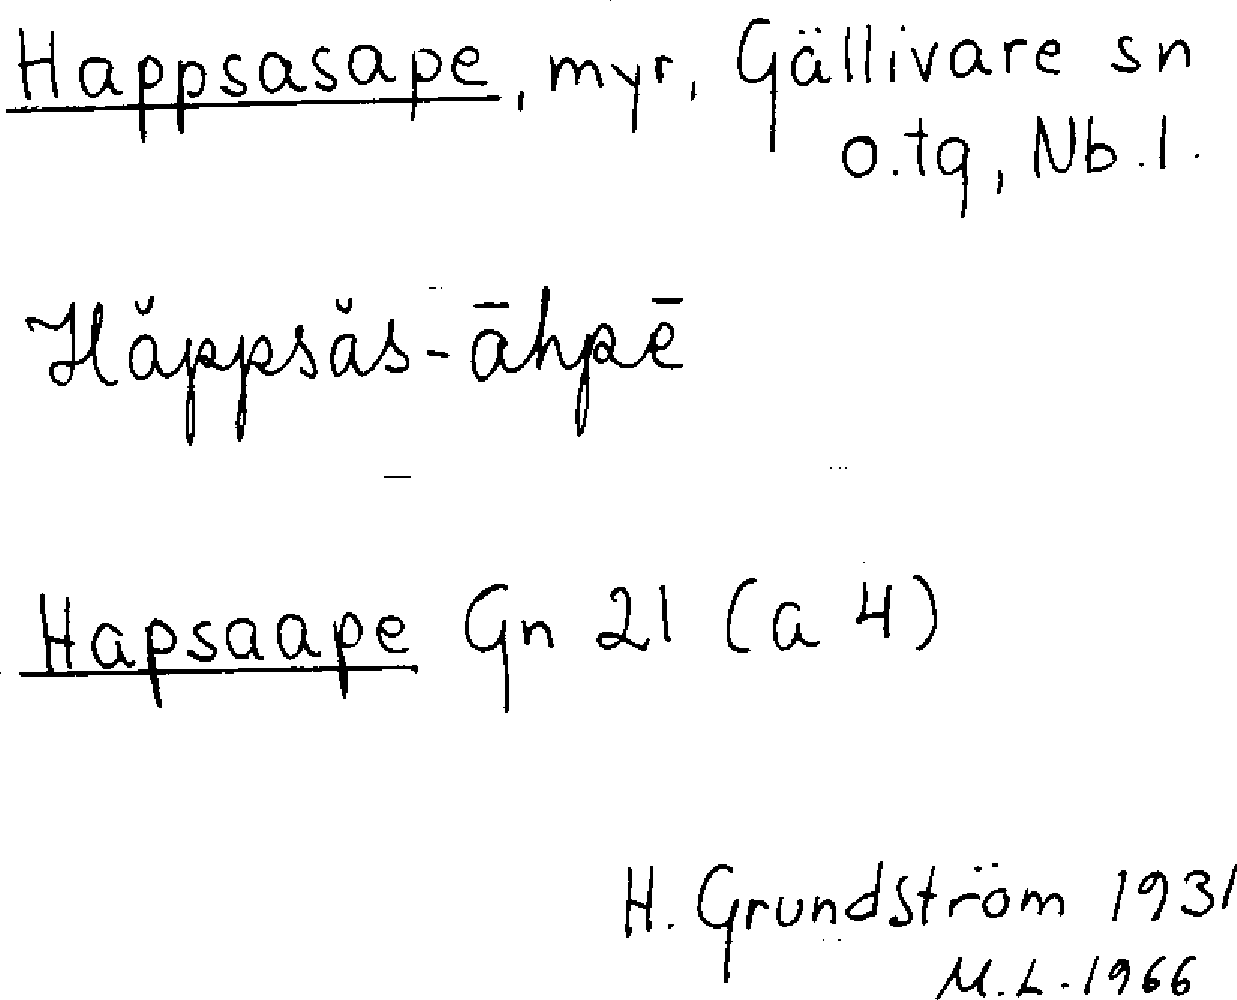 Happsasape, myr, Gällivare sn
o. tg, Nb. l.
Hăppsăs-āhpē
Hapsaape Gn 21 (a 4)
H. Grundström 1931
M. L. 1966